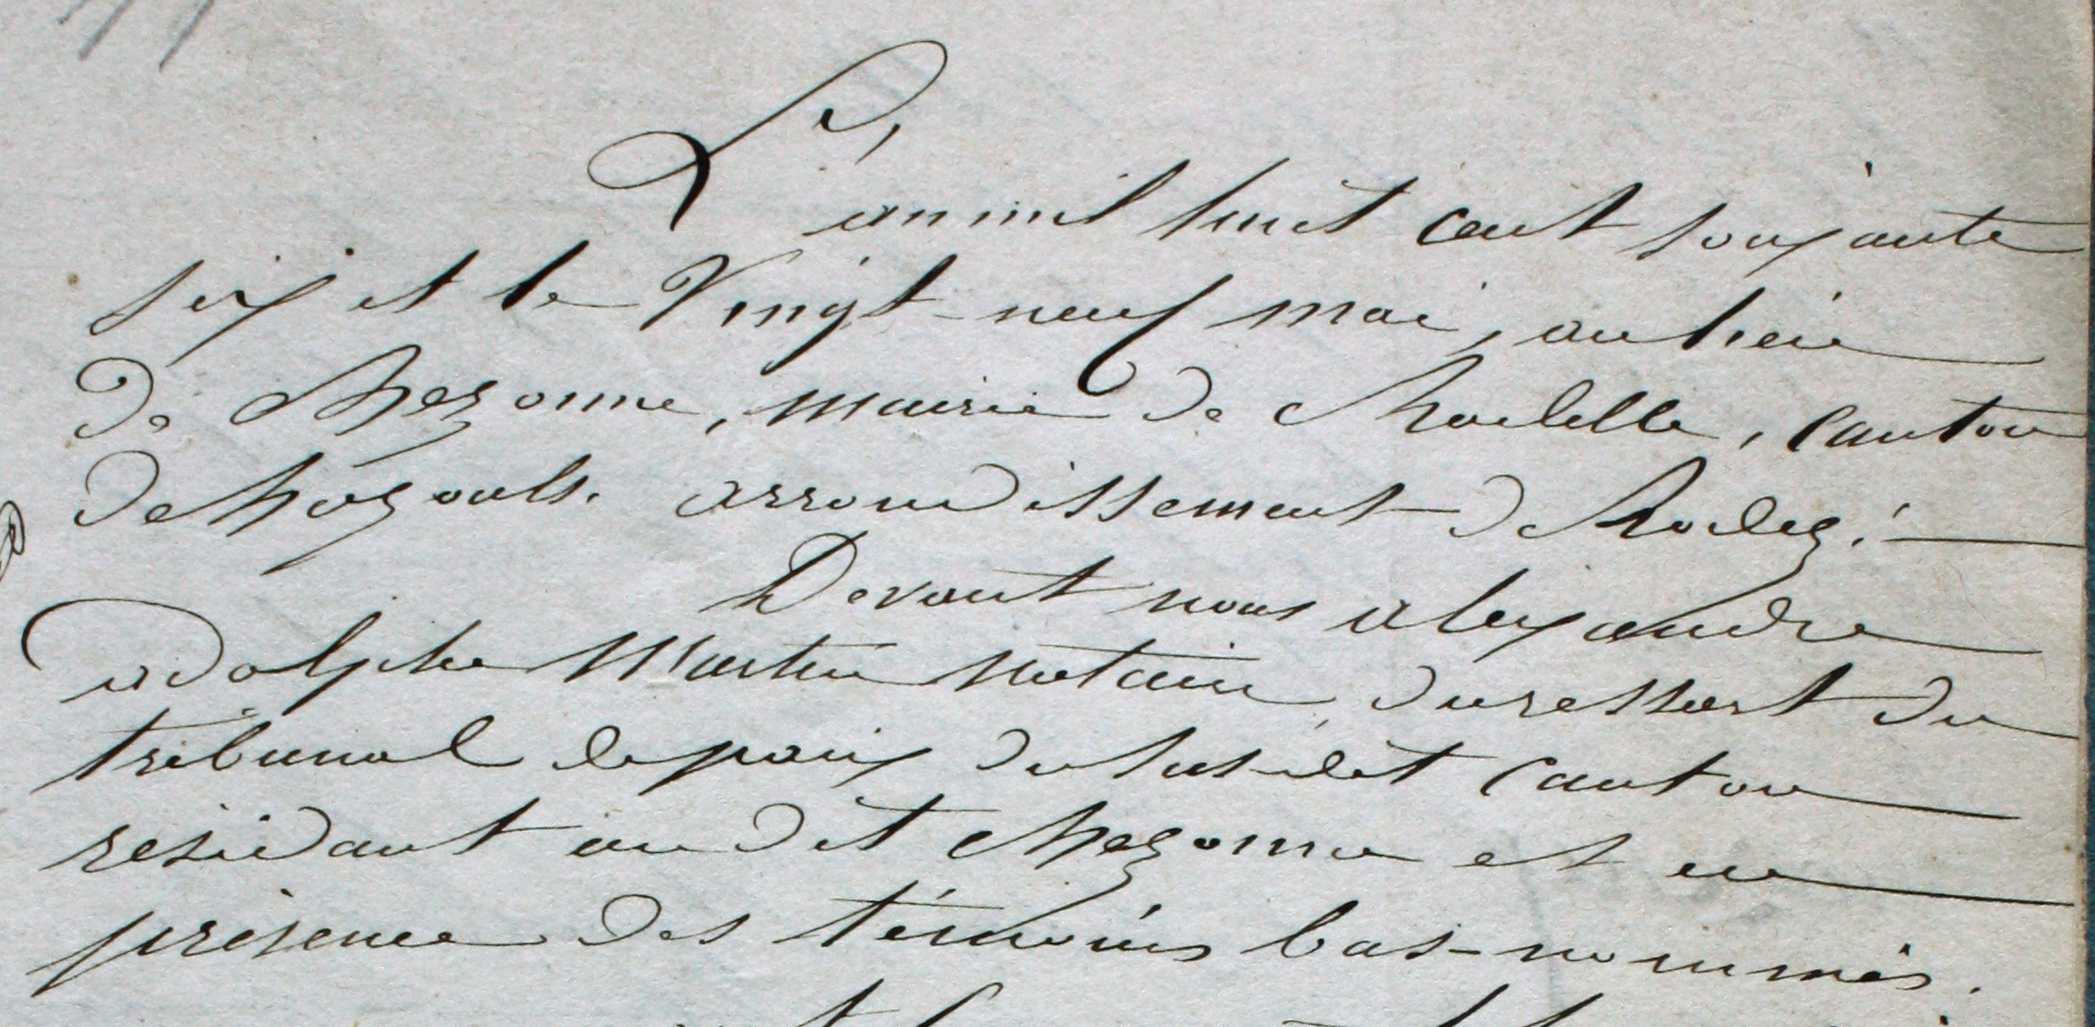 L'an mil huit cent soixante
six et le Vingt-neuf mai, au lieu
de Mezonne, mairie de Rodelle, canton
de Bozouls. arrondissement de Rodez.
Devant nous alexandre
adolphe Martin Notaire du ressort du
tribunal de paix du susdit canton
résidant au dit Mezonne et en
présence des témoins bas-nommés.